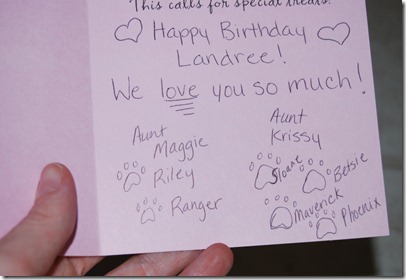 This calls for special treats!
Happy Birthday
Landree!
We love you so much!
Aunt
Maggie
Riley
Ranger
Aunt
Krissy
Sloane
Betsie
Maverick
Phoenix